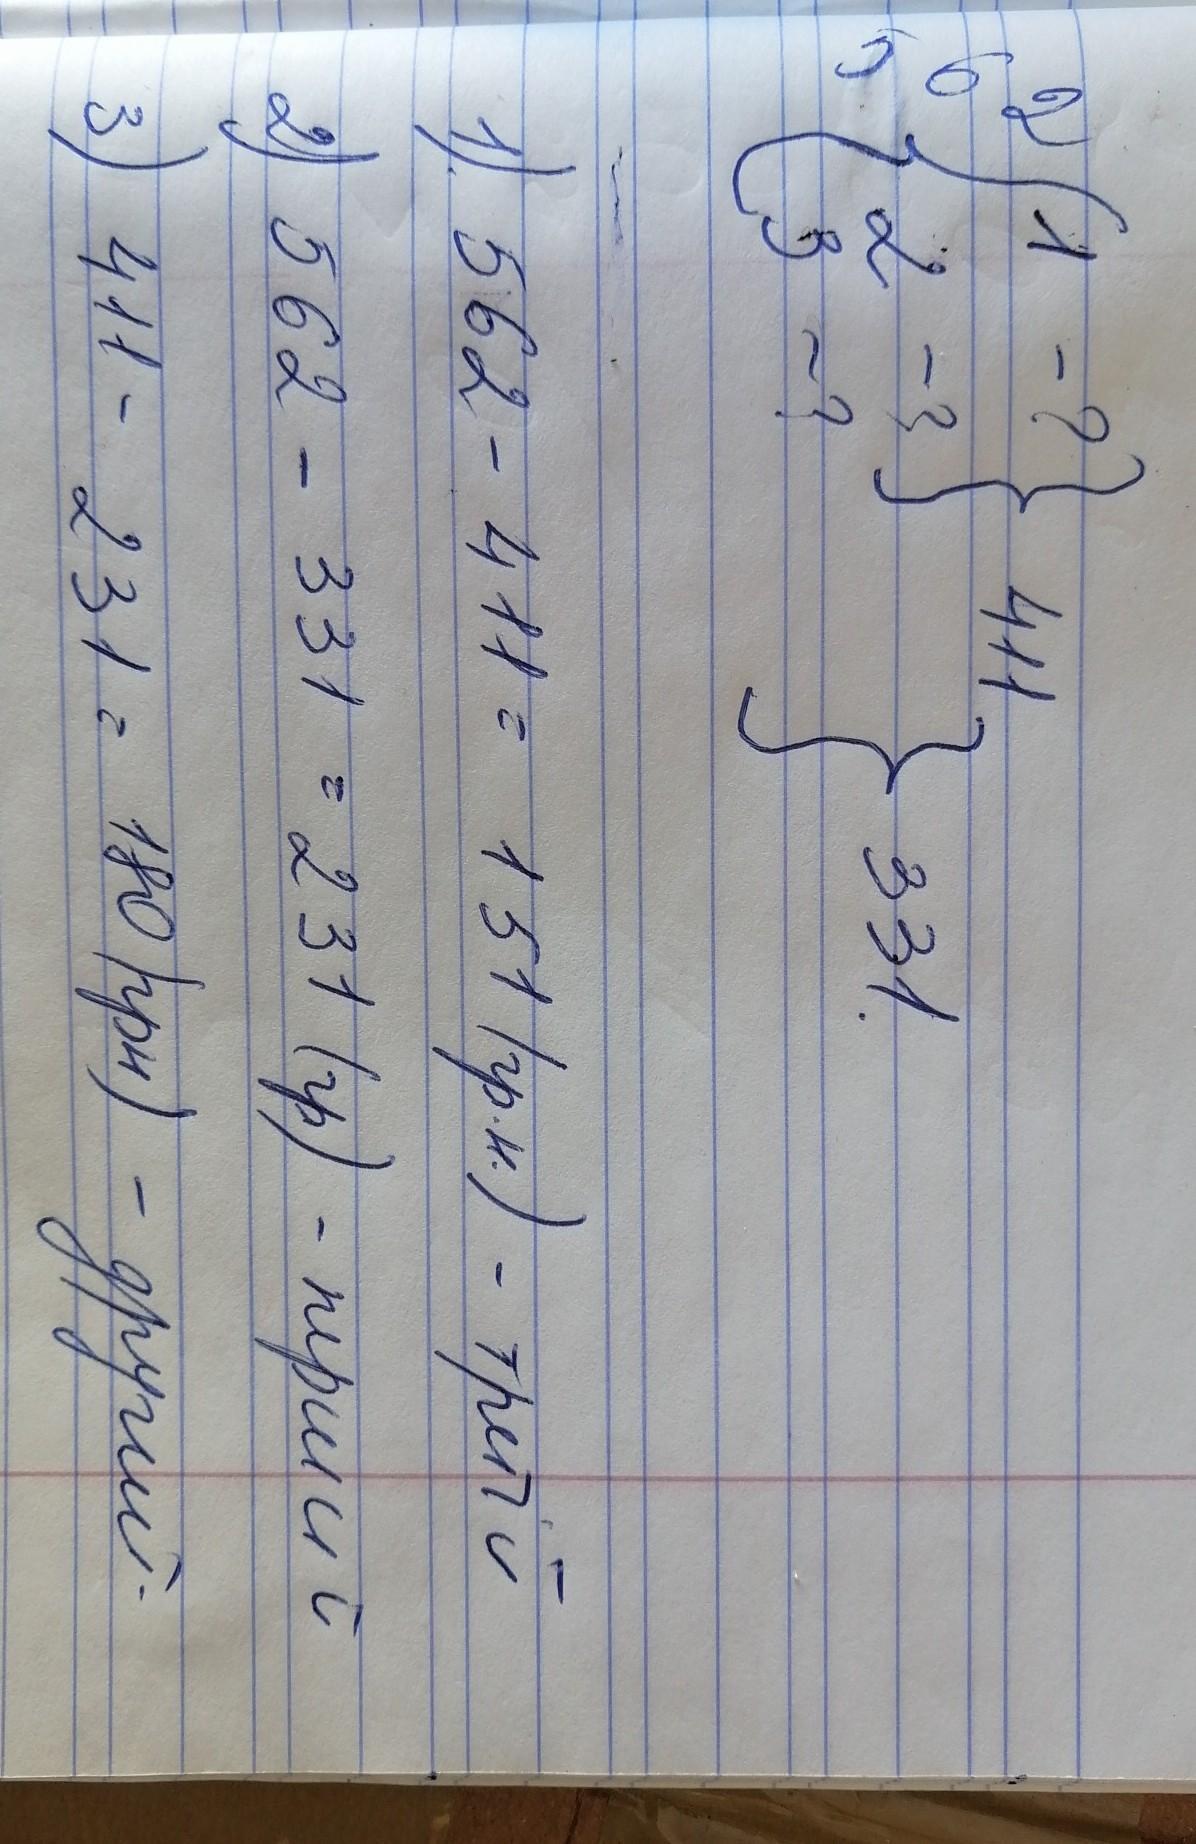 562 { 1 - ? } 411
2 - ? } 331.
3 - ?
1). 562 - 411 = 151 (гр.н.) - третій
2) 562 - 331 = 231 (гр) - перший
3) 411 - 231 = 180 (грн) - другий.